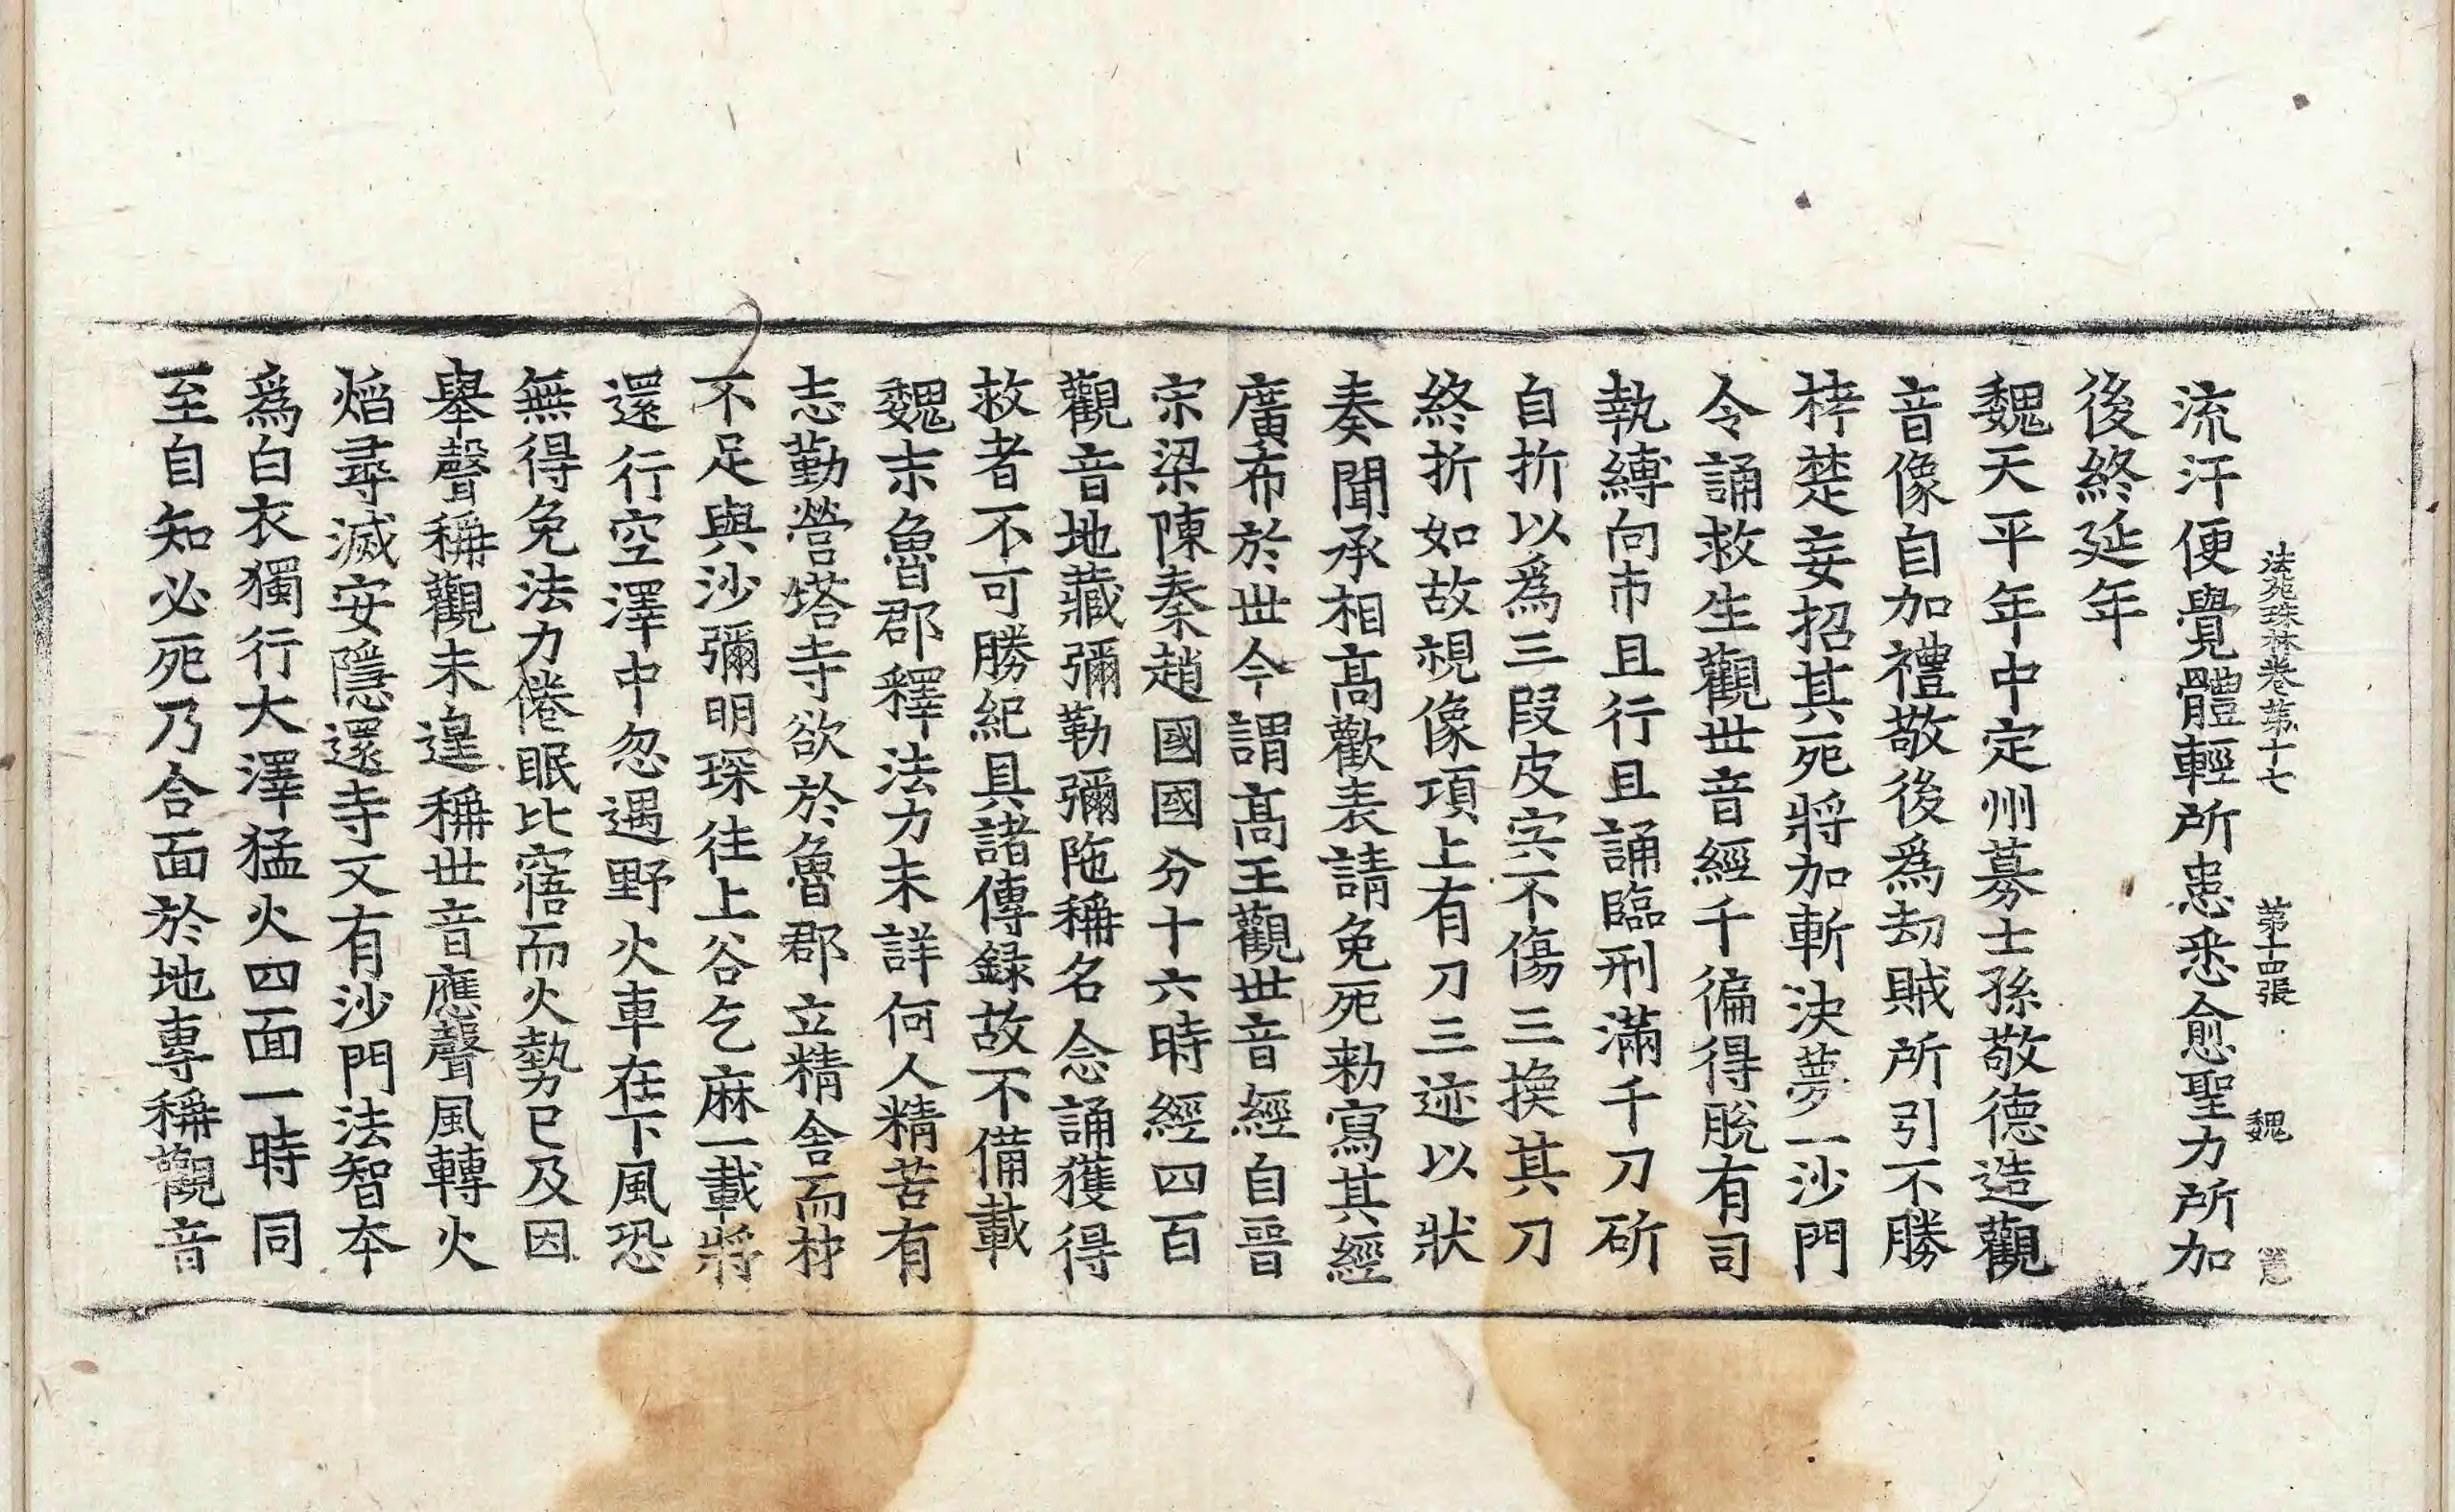 法苑珠林卷第十七 第十四張 魏
流汗便覺體輕所患悉愈聖力所加
後終延年
魏天平年中定州募士孫敬德造觀
音像自加禮敬後爲劫賊所引不勝
栲楚妄招其死將加斬決夢一沙門
令誦救生觀世音經千徧得脫有司
執縛向市且行且誦臨刑滿千刀斫
自折以爲三段皮宍不傷三換其刀
終折如故視像項上有刀三迹以狀
奏聞承相高歡表請免死勑寫其經
廣布於世今謂高王觀世音經自晉
宋梁陳秦趙國國分十六時經四百
觀音地藏彌勒彌陁稱名念誦獲得
救者不可勝紀具諸傳録故不備載
魏末魯郡釋法力未詳何人精苦有
志勤營塔寺欲於魯郡立精舍而材
不足與沙彌明琛往上谷乞麻一載將
還行空澤中忽遇野火車在下風恐
無得免法力倦眠比寤而火勢已及因
舉聲稱觀未遑稱世音應聲風轉火
焰尋滅安隱還寺又有沙門法智本
爲白衣獨行大澤猛火四面一時同
至自知必死乃合面於地專稱觀音